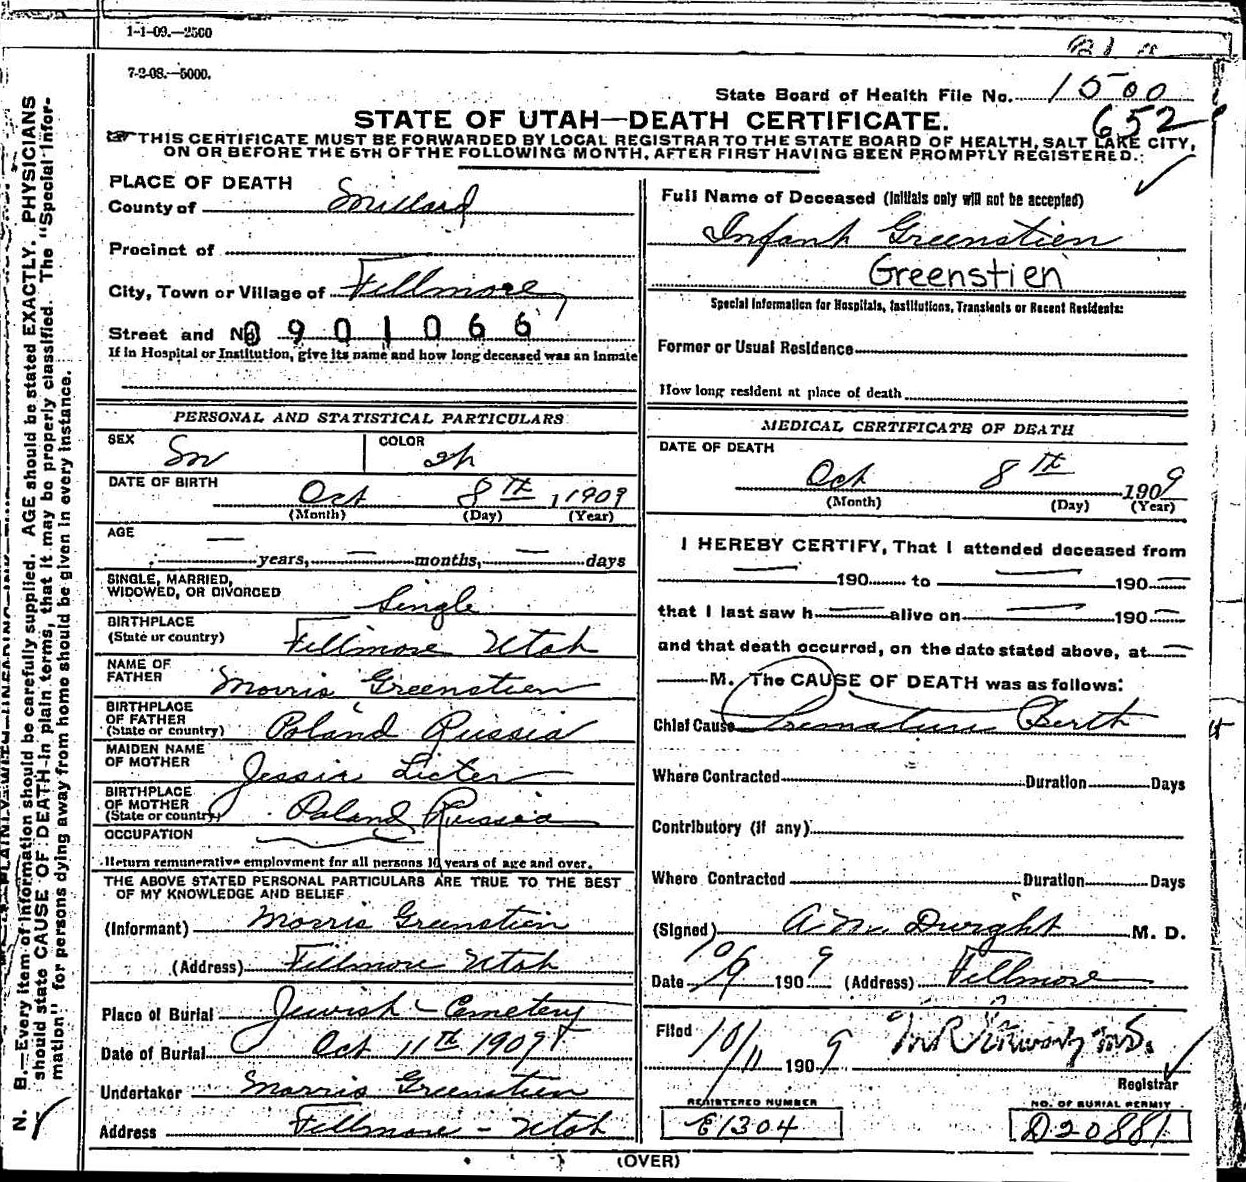 1-1-09.—2500
7-2-08.—5000.
State Board of Health File No. 1500
652
STATE OF UTAH—DEATH CERTIFICATE.
THIS CERTIFICATE MUST BE FORWARDED BY LOCAL REGISTRAR TO THE STATE BOARD OF HEALTH, SALT LAKE CITY,
ON OR BEFORE THE 5TH OF THE FOLLOWING MONTH, AFTER FIRST HAVING BEEN PROMPTLY REGISTERED.
PLACE OF DEATH
County of Millard
Precinct of
City, Town or Village of Fillmore
Street and No 0901066
If in Hospital or Institution, give its name and how long deceased was an inmate
PERSONAL AND STATISTICAL PARTICULARS
SEX M COLOR
DATE OF BIRTH
Oct 8TH, 1909
(Month) (Day) (Year)
AGE
— years, — months, — days
SINGLE, MARRIED,
WIDOWED, OR DIVORCED Single
BIRTHPLACE
(State or country) Fillmore Utah
NAME OF
FATHER Morris Greenstien
BIRTHPLACE
OF FATHER
(State or country) Poland Russia
MAIDEN NAME
OF MOTHER Jessia Licter
BIRTHPLACE
OF MOTHER
(State or country) Poland Russia
OCCUPATION
Return remunerative employment for all persons 10 years of age and over.
THE ABOVE STATED PERSONAL PARTICULARS ARE TRUE TO THE BEST
OF MY KNOWLEDGE AND BELIEF
(Informant) Morris Greenstien
(Address) Fillmore Utah
Place of Burial Jewish - Cemetery
Date of Burial Oct 11th 1909
Undertaker Morris Greenstien
Address Fillmore - Utah
Full Name of Deceased (Initials only will not be accepted)
Infant Greenstien
Greenstien
Special Information for Hospitals, Institutions, Transients or Recent Residents:
Former or Usual Residence
How long resident at place of death
MEDICAL CERTIFICATE OF DEATH
DATE OF DEATH
Oct 8TH 1909
(Month) (Day) (Year)
I HEREBY CERTIFY, That I attended deceased from
— 190 to — 190 —
that I last saw h — alive on — 190 —
and that death occurred, on the date stated above, at —
— M. The CAUSE OF DEATH was as follows:
Chief Cause Premature Berth
Where Contracted Duration Days
Contributory (if any)
Where Contracted Duration Days
(Signed) Dwight M. D.
Date 10/9 1909 (Address) Fillmore
Filed 10/11 1909
Registrar
REGISTERED NUMBER
E1304
NO. OF BURIAL PERMIT
D20881
(OVER)
N. B.—Every item of information should be carefully supplied. AGE should be stated EXACTLY. PHYSICIANS
should state CAUSE OF DEATH in plain terms, that it may be properly classified. The "Special Infor-
mation" for persons dying away from home should be given in every instance.